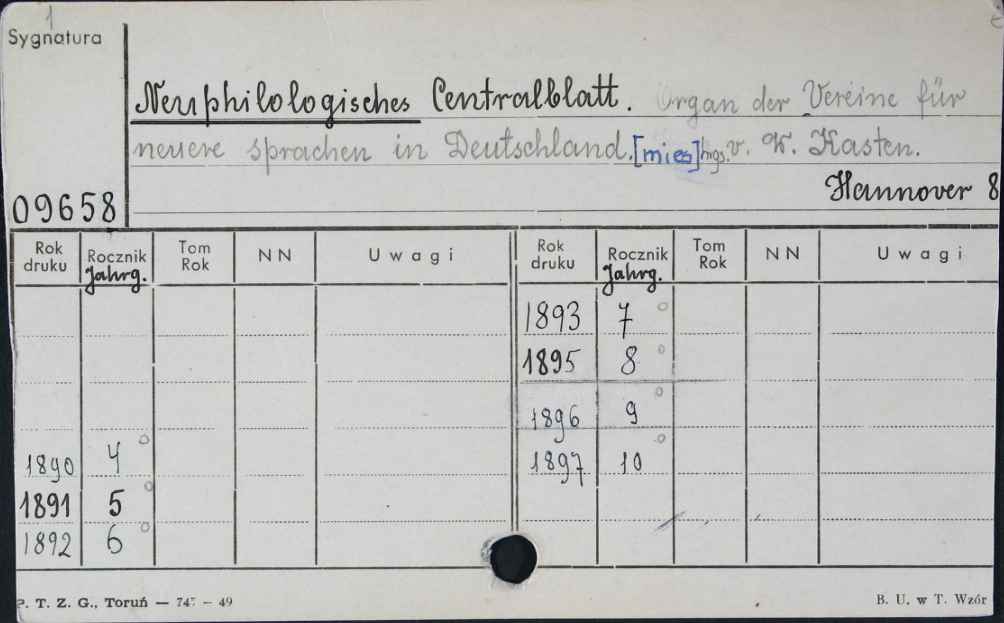 1
Sygnatura
Neuphilologisches Centralblatt. Organ der Vereine für
neuere sprachen in Deutschland. [mies] hgs. v. W. Kasten.
Hannover 8
09658
Rok druku Rocznik Jahrg. Tom Rok NN Uwagi Rok druku Rocznik Jahrg. Tom Rok NN Uwagi
1893 7
1895 8
1896 9
1890 4 1897 10
1891 5
1892 6
P. T. Z. G., Toruń — 747 – 49 B. U. w T. Wzór